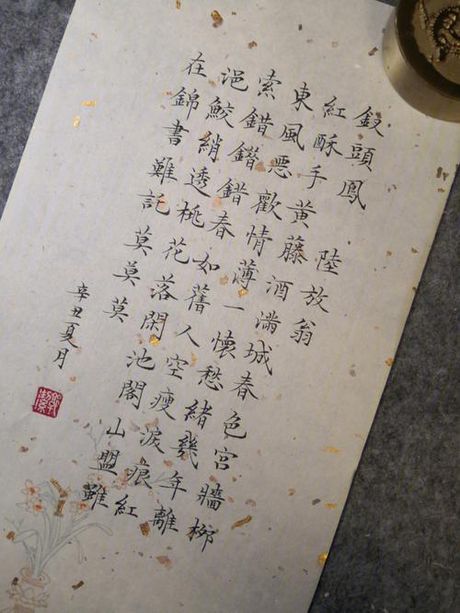 釵頭鳳 陸放翁
紅酥手黃藤酒滿城春色宮牆柳
東風悪歡情薄一懷愁緒幾年離
索錯錯錯春如舊人空瘦淚痕紅
浥鮫綃透桃花落閑池閣山盟雖
在錦書難託莫莫莫
辛丑夏月